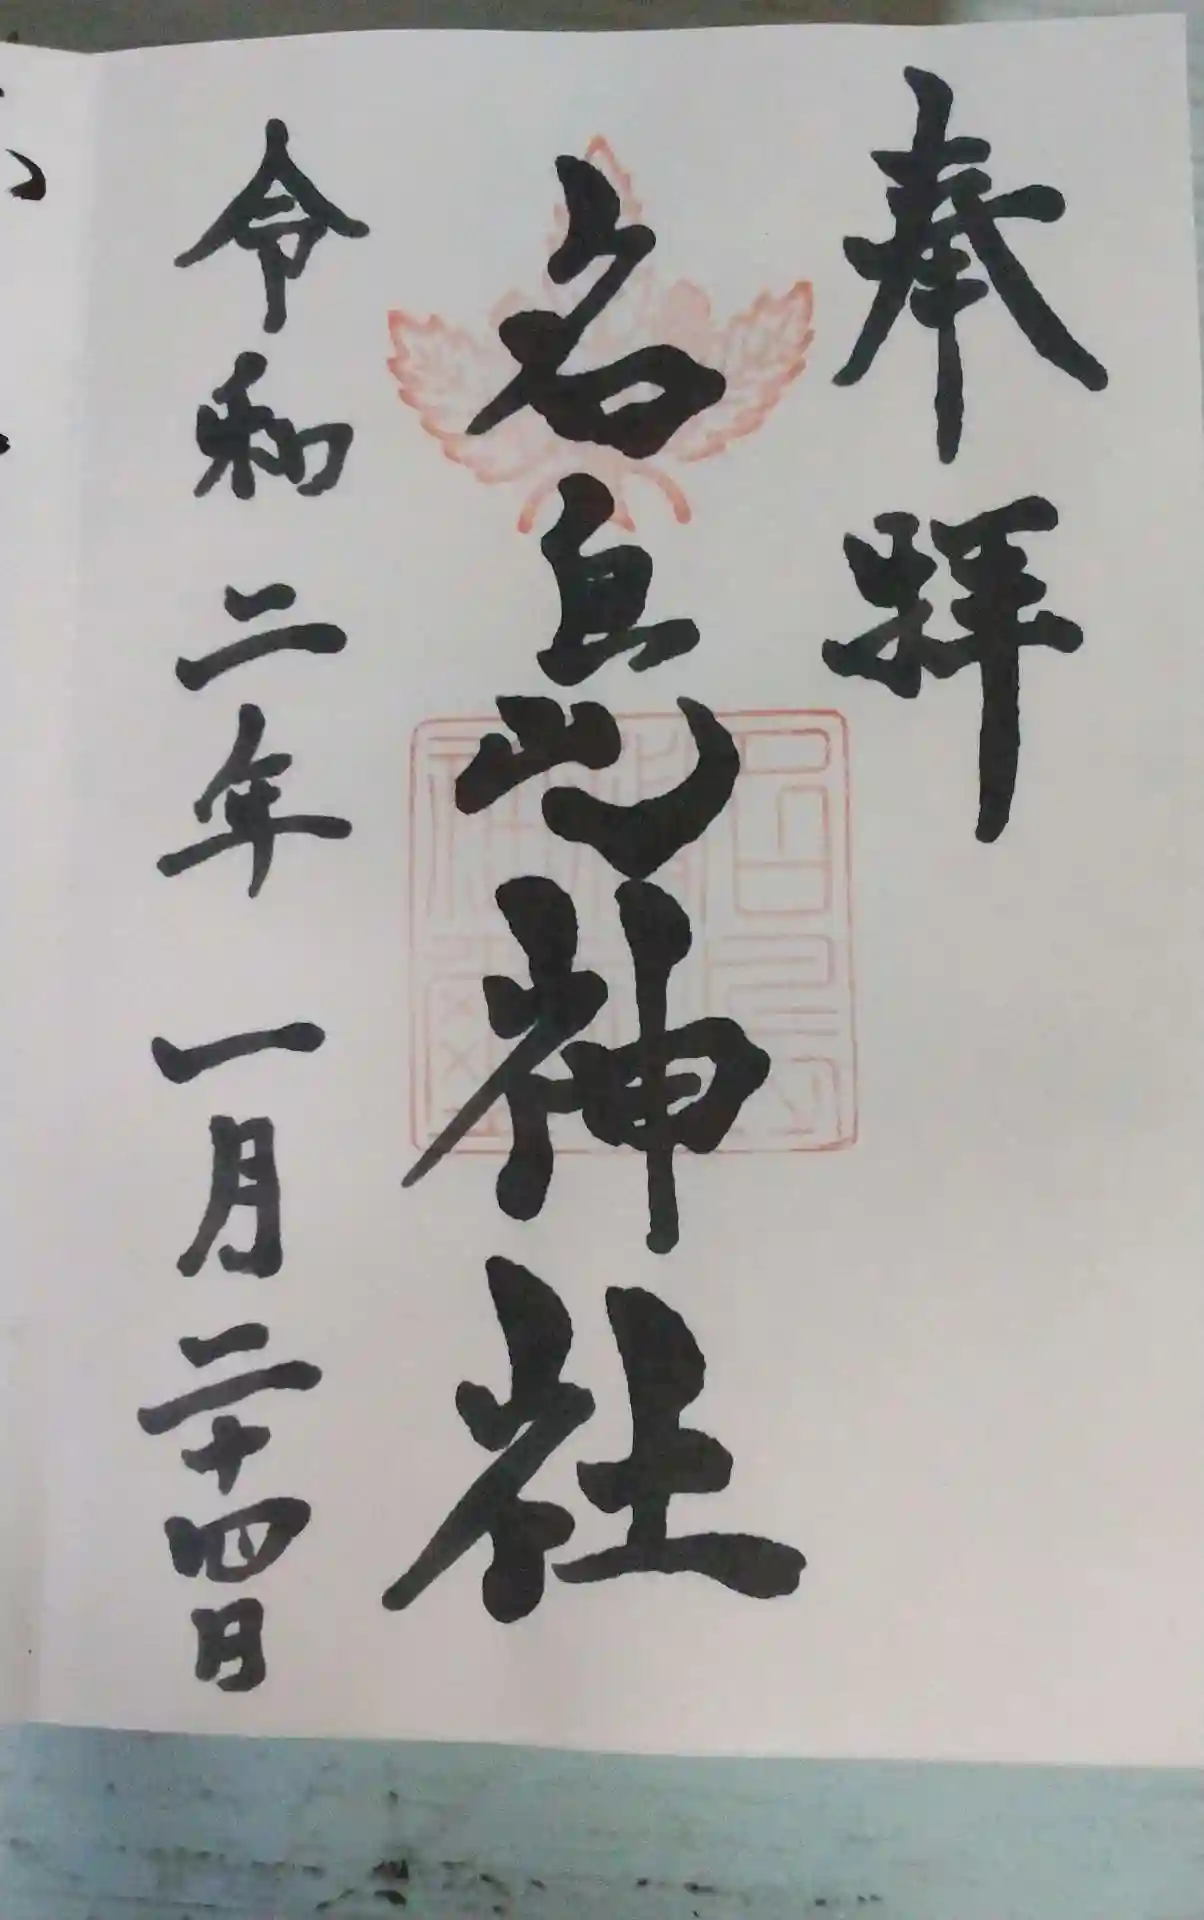 奉拝
名島神社
令和二年 一月二十四日